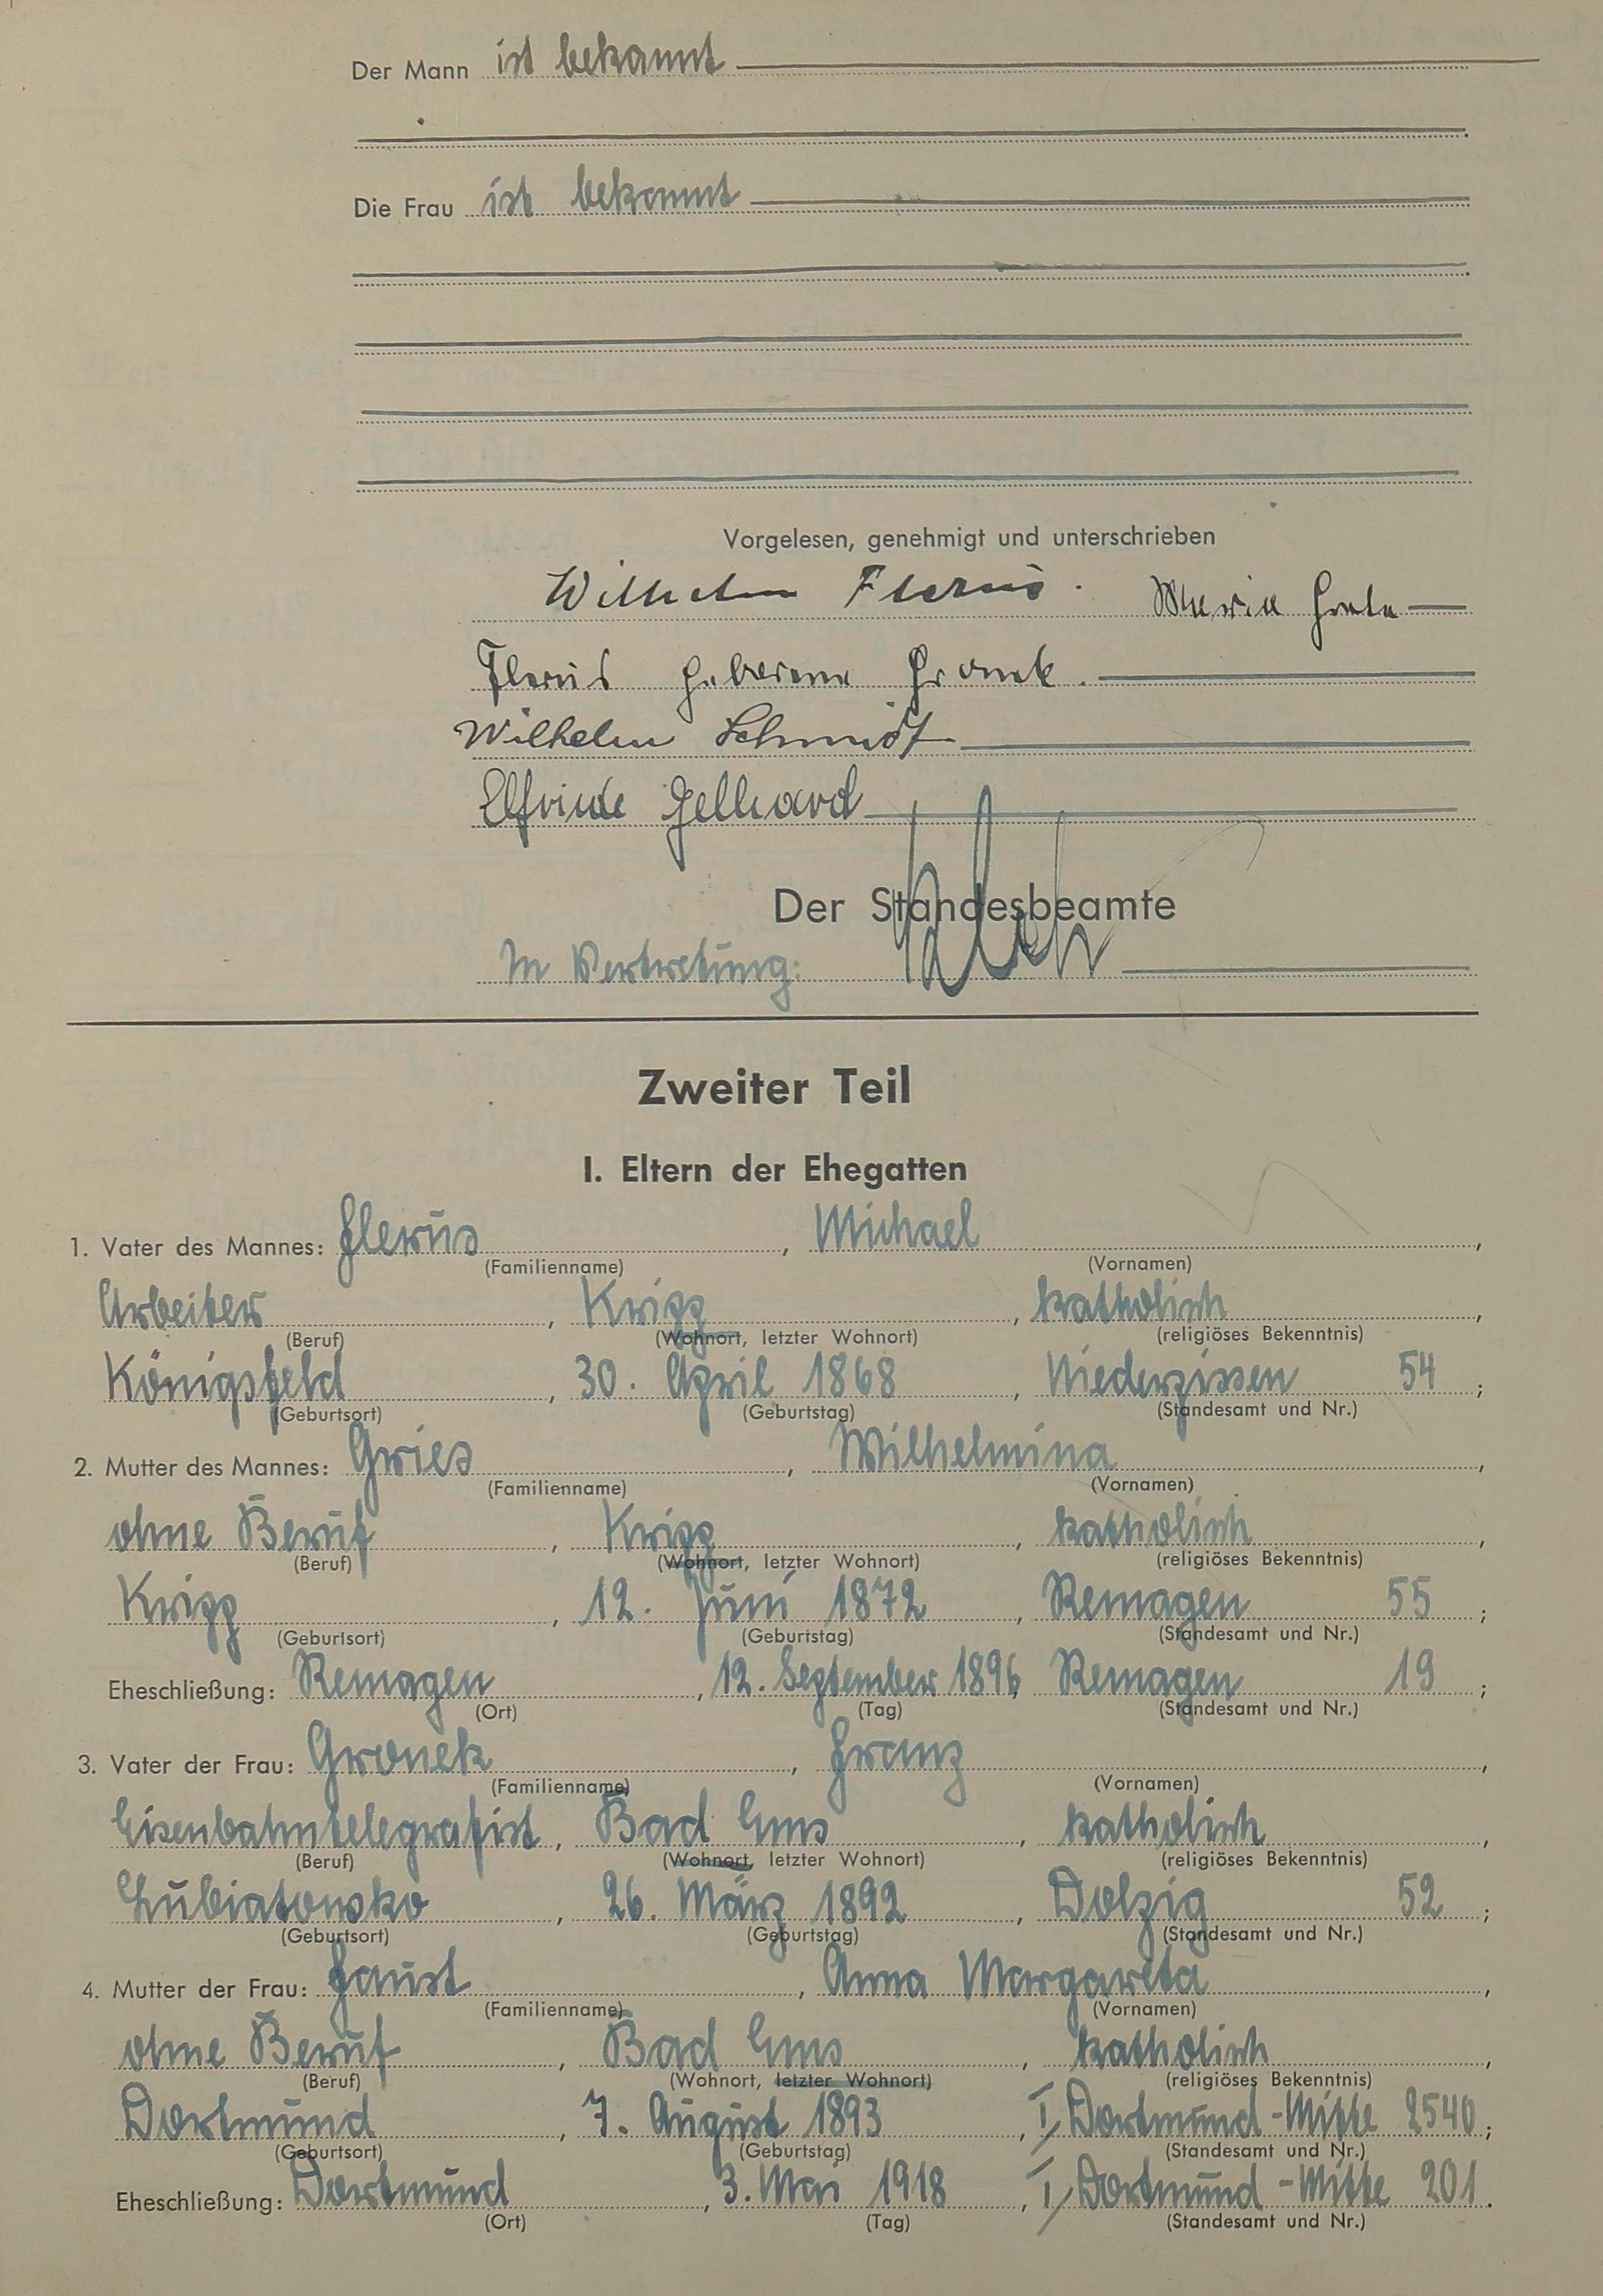 Der Mann ist bekannt
Die Frau ist bekannt
Vorgelesen, genehmigt und unterschrieben
Wilhelm Flerus. Maria Greta
Flerus geborene Gronek.
Wilhelm Schmidt
Elfriede Gelhard
Der Standesbeamte
In Vertretung:
Zweiter Teil
I. Eltern der Ehegatten
1. Vater des Mannes: Flerus, Michael,
(Familienname) (Vornamen)
Arbeiter, Kripp, katholisch,
(Beruf) (Wohnort, letzter Wohnort) (religiöses Bekenntnis)
Königsfeld, 30. April 1868, Niederzissen 54;
(Geburtsort) (Geburtstag) (Standesamt und Nr.)
2. Mutter des Mannes: Gries, Wilhelmina,
(Familienname) (Vornamen)
ohne Beruf, Kripp, katholisch,
(Beruf) (Wohnort, letzter Wohnort) (religiöses Bekenntnis)
Kripp, 12. Juni 1872, Remagen 55;
(Geburtsort) (Geburtstag) (Standesamt und Nr.)
Eheschließung: Remagen, 12. September 1896, Remagen 19;
(Ort) (Tag) (Standesamt und Nr.)
3. Vater der Frau: Gronek, Franz,
(Familienname) (Vornamen)
Eisenbahntelegrafist, Bad Ems, katholisch,
(Beruf) (Wohnort, letzter Wohnort) (religiöses Bekenntnis)
Lubiatowko, 26. März 1892, Dolzig 52;
(Geburtsort) (Geburtstag) (Standesamt und Nr.)
4. Mutter der Frau: Faust, Anna Margareta,
(Familienname) (Vornamen)
ohne Beruf, Bad Ems, katholisch,
(Beruf) (Wohnort, letzter Wohnort) (religiöses Bekenntnis)
Dortmund, 7. August 1893, I, Dortmund-Mitte 2540;
(Geburtsort) (Geburtstag) (Standesamt und Nr.)
Eheschließung: Dortmund, 3. Mai 1918, I, Dortmund-Mitte 201.
(Ort) (Tag) (Standesamt und Nr.)